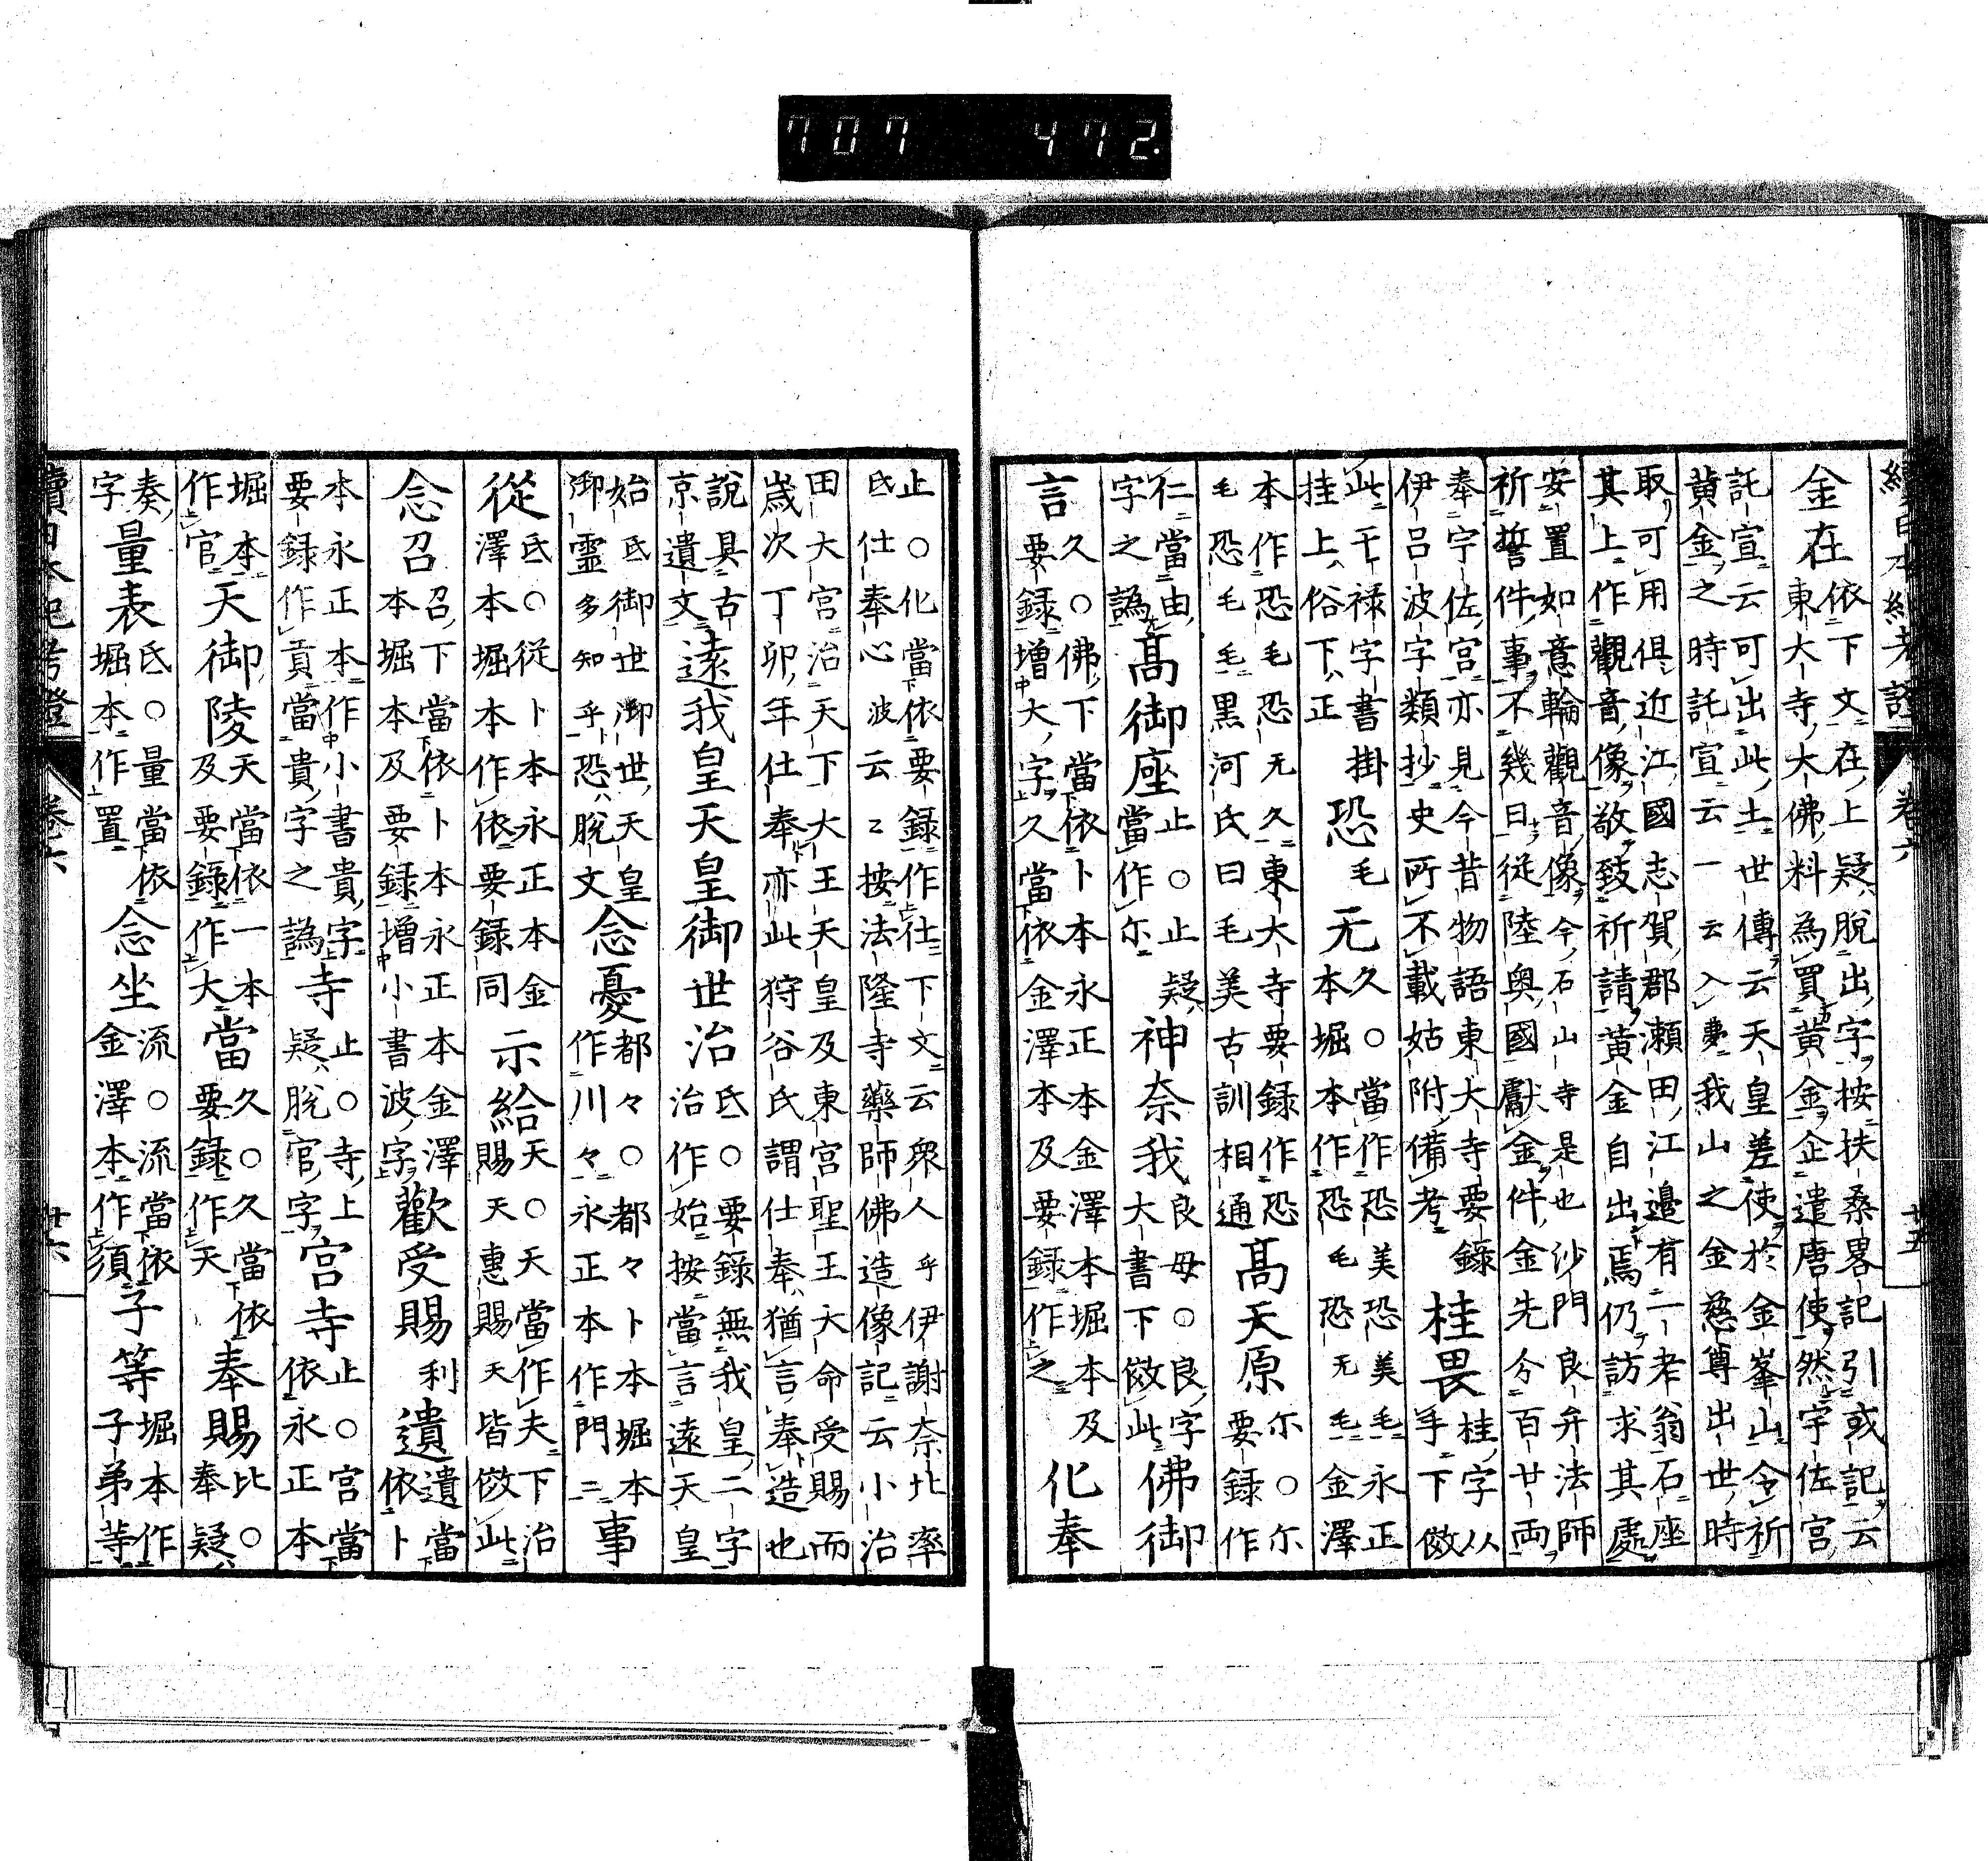 707 472.
續日本紀考證 卷六 廿五
金在 依下文在上疑脫出字按扶桑畧記引或記云
東大寺大佛料為買黄金企遣唐使然宇佐宮
託宣云可出此土世傳云天皇差使於金峯山令祈
黄金之時託宣云一云入夢我山之金慈尊出世時
取可用俱近江國志賀郡瀬田江邉有一老翁石座
其上作觀音像敬致祈請黄金自出焉仍訪求其處
安置如意輪觀音像今石山寺是也沙門良弁法師
祈誓件事不幾日從陸奥國獻金件金先分百廿両
奉宇佐宮亦見今昔物語東大寺要錄
伊呂波字類抄史所不載姑附備考 桂畏 桂字从
手下傚
此干禄字書掛
挂上俗下正 恐 毛 无 久○當作恐美恐美毛永正
本堀本作恐毛恐无毛金澤
本作恐毛恐无久東大寺要録作恐
毛恐毛毛黒河氏曰毛美古訓相通 高天原 尓○尓
要録作
仁當由
字之譌 高御座 止○止疑
當作尓 神奈我 良母○良字
大書下傚此 佛御
言 久○佛下當依卜本永正本金澤本堀本及
要録增大字久當依金澤本及要録作之 化奉
止○化當依要録作仕下文云衆人乎伊謝奈比率
氐仕奉心波云云按法隆寺藥師佛造像記云小治
田大宮治天下大王天皇及東宮聖王大命受賜而
歳次丁卯年仕奉亦此狩谷氏謂仕奉猶言奉造也
說具古
京遺文 遠我皇天皇御世治 氐○要録無我皇二字
治作始按當言遠天皇
始氐御世御世天皇
御霊多知乎恐脫文 念憂 都々○都々卜本堀本
作川々永正本作門二 事
從 氐○從卜本永正本金
澤本堀本作依要録同 示給 天○天當作夫下治
賜天惠賜天皆傚此
念召 召下當依卜本永正本金澤
本堀本及要録增小書波字 歡受賜 利 遺 遺當
依卜
本永正本作小書貴字
要録作貢當貴字之譌 寺 止○寺上
疑脫官字 宮寺 止○宮當
依永正本
堀本
作官 天御陵 天當依一本
及要録作大 當 久○久當依
要録作天 奉賜 比○
奉疑
奏
字 量表 氐○量當依
堀本作置 念坐 流○流當依
金澤本作須 子等 堀本作
子弟等
續日本紀考證 卷六 廿六